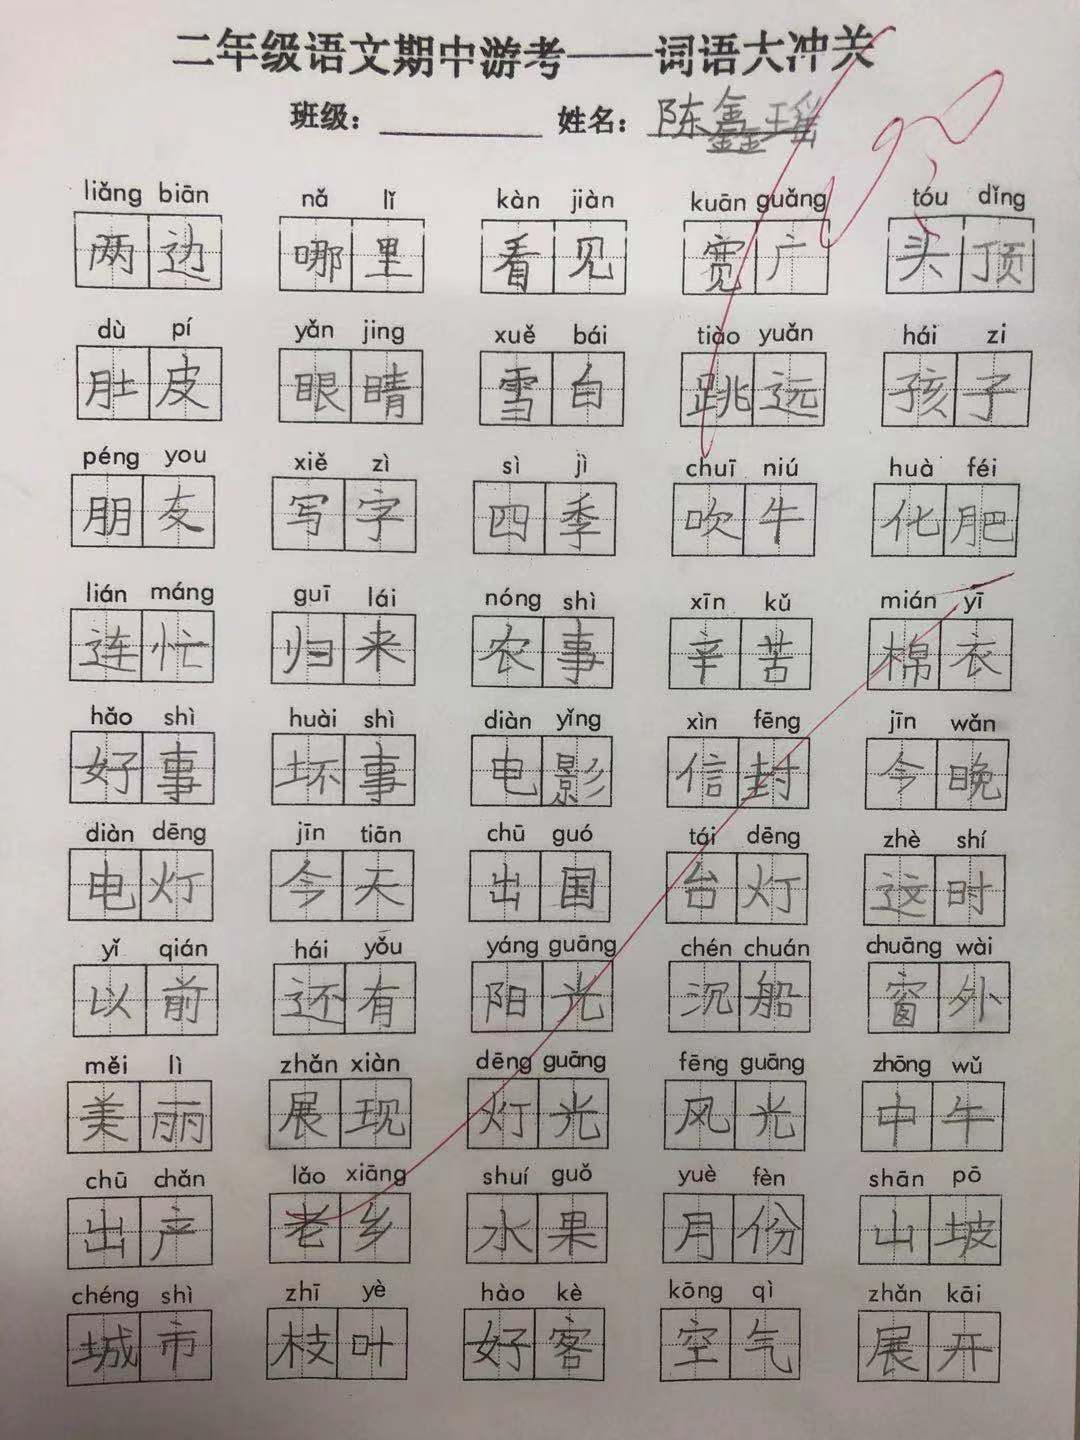 二年级语文期中游考——词语大冲关
班级：________ 姓名：陈鑫瑶
liǎng biān nǎ lǐ kàn jiàn kuān guǎng tóu dǐng
两边 哪里 看见 宽广 头顶
dù pí yǎn jing xuě bái tiào yuǎn hái zi
肚皮 眼睛 雪白 跳远 孩子
péng you xiě zì sì jì chuī niú huà féi
朋友 写字 四季 吹牛 化肥
lián máng guī lái nóng shì xīn kǔ mián yī
连忙 归来 农事 辛苦 棉衣
hǎo shì huài shì diàn yǐng xìn fēng jīn wǎn
好事 坏事 电影 信封 今晚
diàn dēng jīn tiān chū guó tái dēng zhè shí
电灯 今天 出国 台灯 这时
yǐ qián hái yǒu yáng guāng chén chuán chuāng wài
以前 还有 阳光 沉船 窗外
měi lì zhǎn xiàn dēng guāng fēng guāng zhōng wǔ
美丽 展现 灯光 风光 中午
chū chǎn lǎo xiāng shuí guǒ yuè fèn shān pō
出产 老乡 水果 月份 山坡
chéng shì zhī yè hào kè kōng qì zhǎn kāi
城市 枝叶 好客 空气 展开